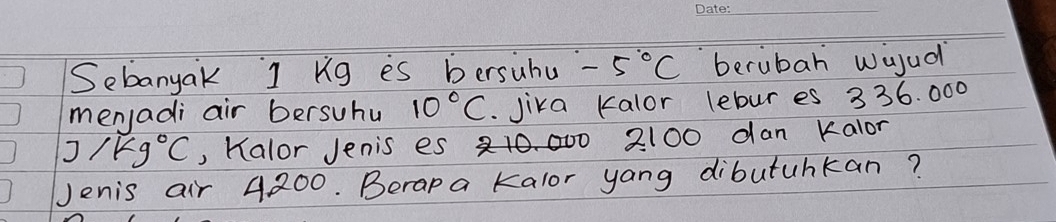 Date:
Sebanyak 1 Kg es bersuhu -5°C berubah wujud
menjadi air bersuhu 10°C. Jika Kalor lebur es 336.000
J/Kg°C, Kalor Jenis es 210.000 2100 dan Kalor
Jenis air 4200. Berapa Kalor yang dibutuhkan ?